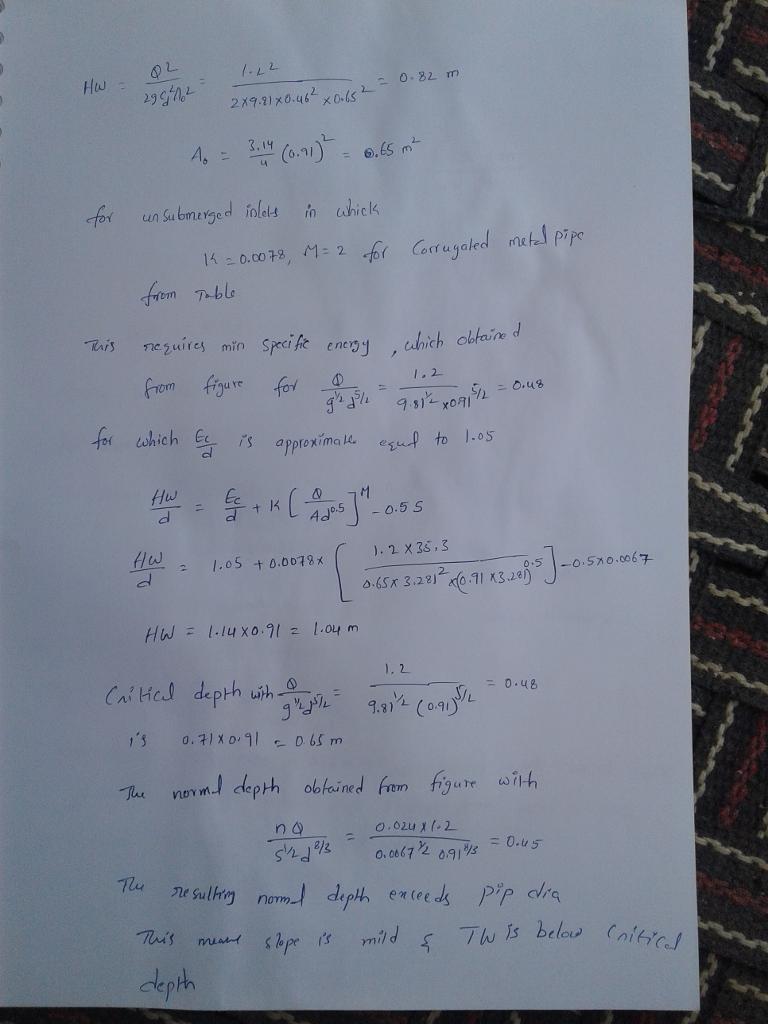 HW = Q2 / 2gCd²A₀² = 1.2² / 2x9.81x0.46² x0.65² = 0.82 m
A₀ = 3.14/4 (0.91)² = 0.65 m²
for unsubmerged inlets in which
K = 0.0078, M = 2 for Corrugated metal pipe
from Table
This requires min specific energy, which obtained
from figure for Q / g^1/2 d^5/2 = 1.2 / 9.81^1/2 x0.91^5/2 = 0.48
for which Ec/d is approximate equal to 1.05
Hw/d = Ec/d + K [ Q / Ad^0.5 ]^M - 0.5 S
Hw/d = 1.05 + 0.0078x [ 1.2 X 35.3 / 0.65x 3.281² x(0.91 x3.281)^0.5 ] - 0.5x0.0067
HW = 1.14x0.91 = 1.04 m
Critical depth with Q / g^1/2 d^5/2 = 1.2 / 9.81^1/2 (0.91)^5/2 = 0.48
is 0.71x0.91 = 0.65 m
The normal depth obtained from figure with
nQ / S^1/2 d^8/3 = 0.024x1.2 / 0.0067^1/2 0.91^8/3 = 0.45
The resulting normal depth exceeds pip dia
This means slope is mild & TW is below Critical
depth